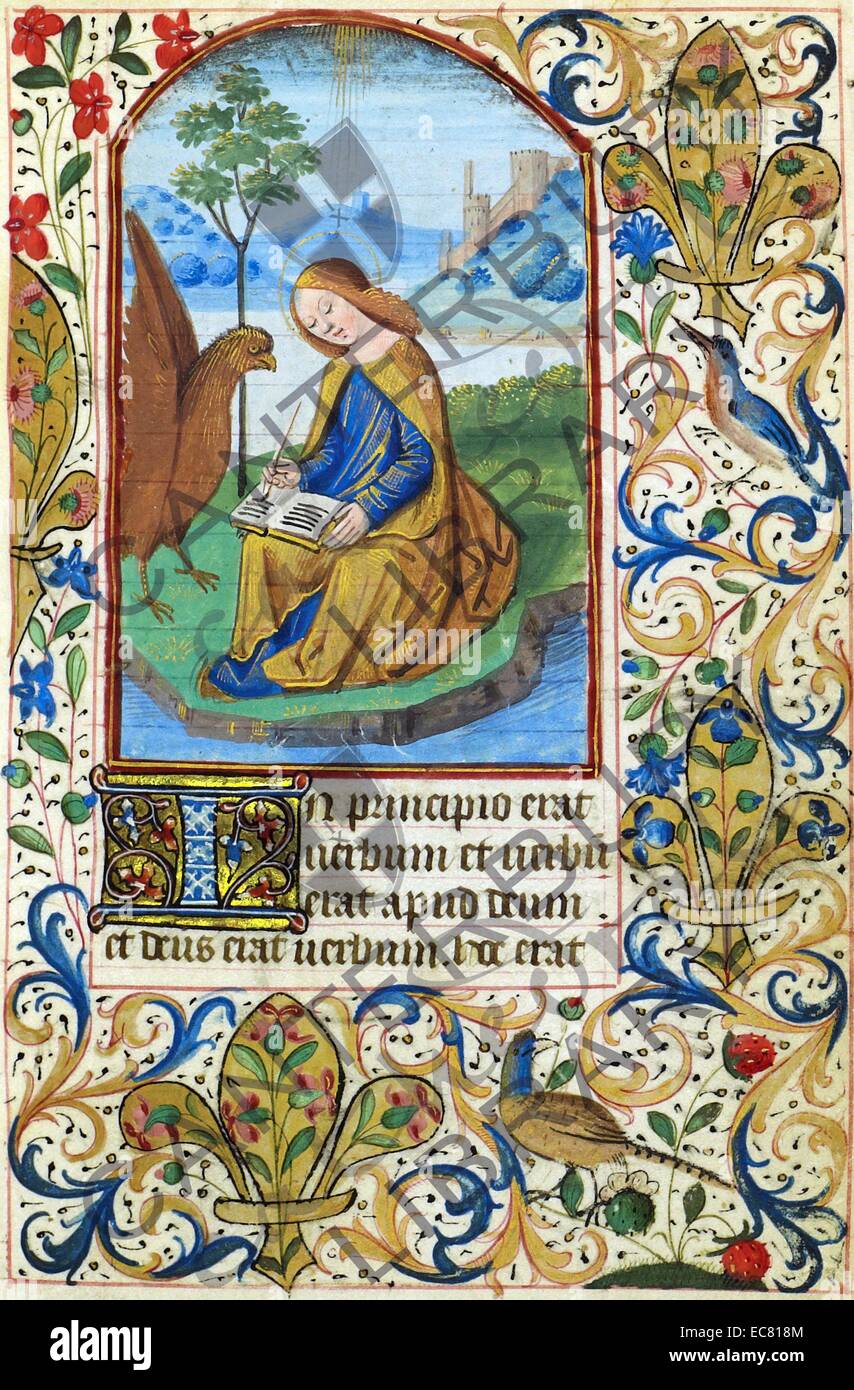 In principio erat
uerbum et uerbū
erat apud deum .
et deus erat uerbum. hoc erat
CANTERBURY
LIBRARY
CANTERBURY
LIBRARY
alamy stock photo
EC818M
www.alamy.com